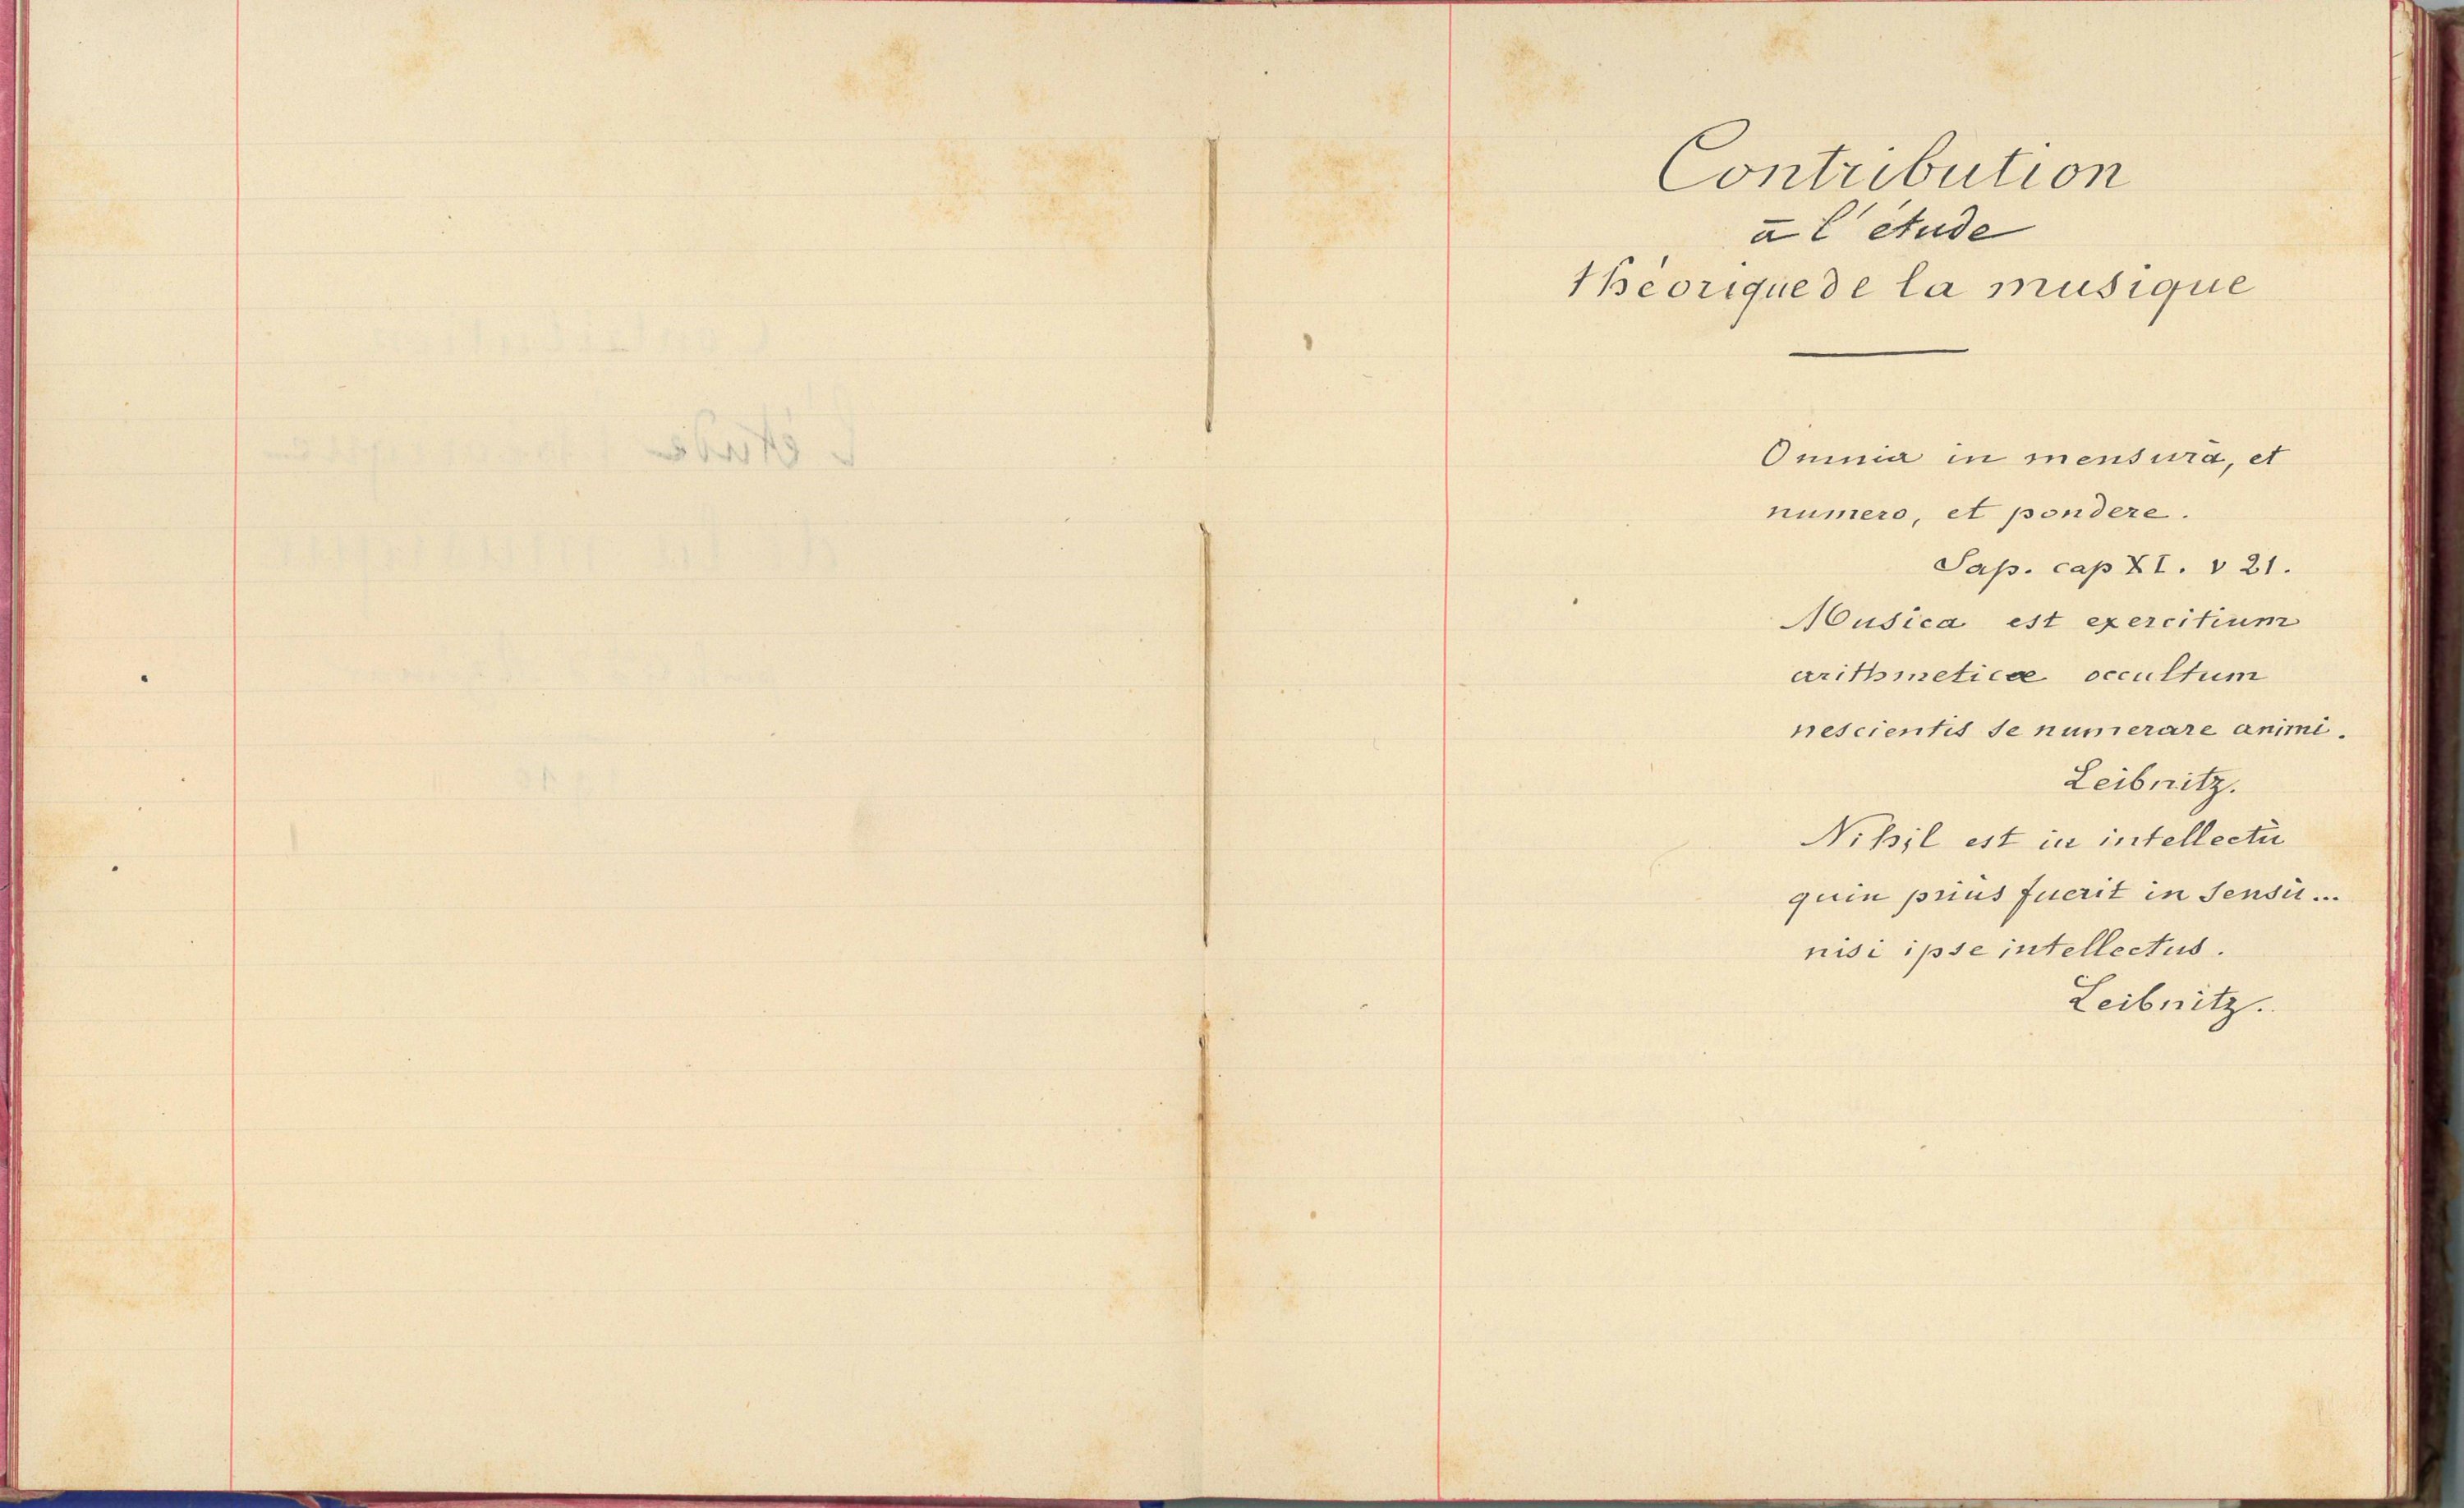 Contribution
à l'étude
théorique de la musique
Omnia in mensurâ, et
numero, et pondere.
Sap. cap XI. v 21.
Musica est exercitium
arithmeticæ occultum
nescientis se numerare animi.
Leibnitz.
Nihil est in intellectû
quin priùs fuerit in sensû...
nisi ipse intellectus.
Leibnitz.